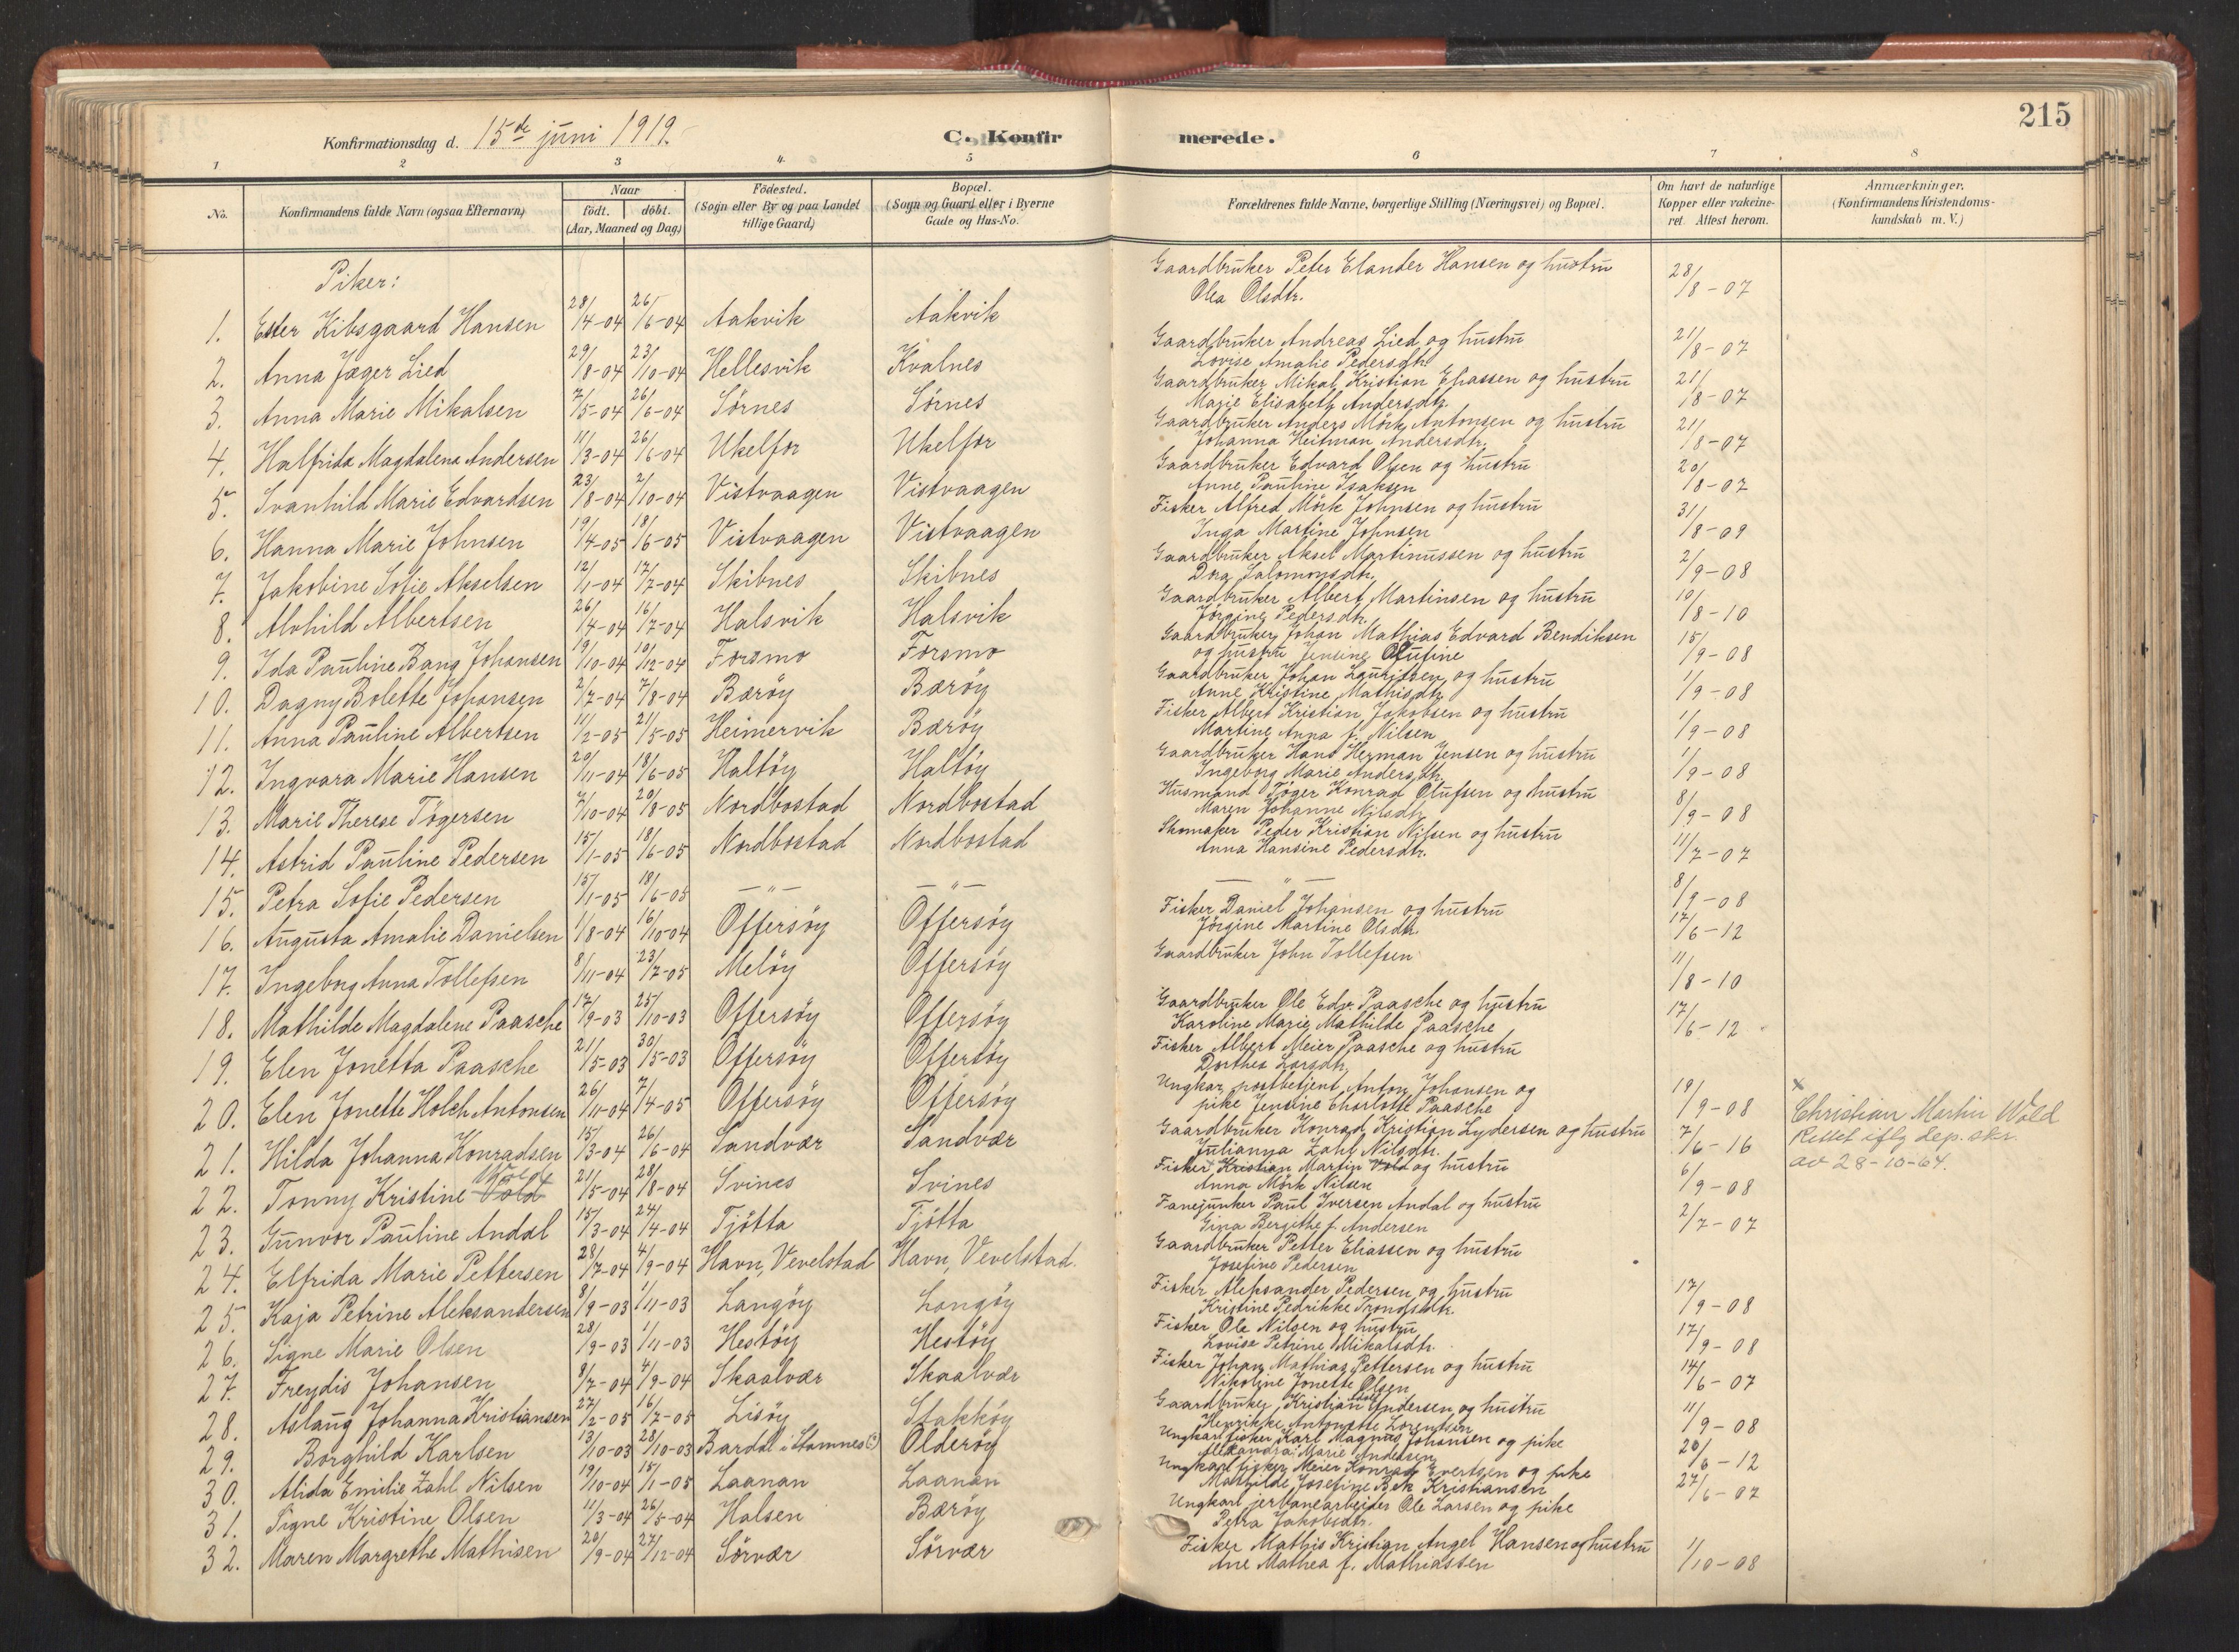 215
Konfirmationsdag d. 15de juni 1919.
C. Konfirmerede.
1 2 3 4. 5 6 7 8
No. Konfirmandens fulde Navn (ogsaa Efternavn) Naar født. døbt. (Aar, Maaned og Dag) Födested. (Sogn eller By og paa Landet tillige Gaard) Bopæl. (Sogn og Gaard eller i Byerne Gade og Hus-No. Forældrenes fulde Navne, borgerlige Stilling (Næringsvei) og Bopæl. Om havt de naturlige Kopper eller vakcineret. Attest herom. Anmærkninger. (Konfirmandens Kristendomskundskab m. V.)
Piker:
1. Ester Kibsgaard Hansen 28/4-04 26/6-04 Aakvik Aakvik Gaardbruker Peter Elander Hansen og hustru Olea Olsdtr. 28/8-07
2. Anna Jæger Lied 29/8-04 23/10-04 Hellesvik Kvalnes Gaardbruker Andreas Lied og hustru Lovise Amalie Pedersdtr. 21/8-07
3. Anna Marie Mikalsen 7/5-04 26/6-04 Sørnes Sørnes Gaardbruker Mikal Kristian Eliassen og hustru Marie Elisabeth Andersdtr. 21/8-07
4. Halfrida Magdalena Andersen 11/3-04 26/6-04 Ukelfor Ukelfor Gaardbruker Anders Mörk Antonsen og hustru Johanna Heitman Andersdtr. 21/8-07
5. Svanhild Marie Edvardsen 23/8-04 2/10-04 Vistvaagen Vistvaagen Gaardbruker Edvard Olsen og hustru Anne Pauline Isaksen 20/8-07
6. Hanna Marie Johnsen 19/4-05 18/6-05 Vistvaagen Vistvaagen Fisker Alfred Mörk Johnsen og hustru Inga Martine Johnsen 31/8-09
7. Jakobine Sofie Akselsen 12/1-04 17/7-04 Skibnes Skibnes Gaardbruker Aksel Martinussen og hustru Dora Salomonsdtr. 2/9-08
8. Alvhild Albertsen 26/4-04 16/7-04 Halsvik Halsvik Gaardbruker Albert Martinsen og hustru Jørgine Pedersdtr. 10/8-10
9. Ida Pauline Bang Johansen 19/10-04 19/12-04 Forsmo Forsmo Gaardbruker Johan Mathias Edvard Bendiksen og hustru Jensine Olufine 15/9-08
10. Dagny Bolette Johansen 2/7-04 7/8-04 Bærøy Bærøy Gaardbruker Johan Lauritsen og hustru Anne Kristine Mathisdtr. 1/9-08
11. Anna Pauline Albertsen 11/2-05 21/5-05 Heimervik Bærøy Fisker Albert Kristian Jakobsen og hustru Martine Anna f. Nilsen 1/9-08
12. Ingvara Marie Hansen 20/11-04 18/6-05 Haltøy Haltøy Gaardbruker Hans Herman Jensen og hustru Ingeborg Marie Andersdtr. 1/9-08
13. Marie Therese Tøgersen 7/10-04 20/8-05 Nordbostad Nordbostad Husmand Tøger Konrad Olufsen og hustru Maren Johanne Nilsdtr. 8/9-08
14. Astrid Pauline Pedersen 15/1-05 18/6-05 Nordbostad Nordbostad Skomaker Peder Kristian Nilsen og hustru Anna Hansine Pedersdtr. 11/7-07
15. Petra Sofie Pedersen 15/1-05 18/6-05 —"— —"— — " — 8/9-08
16. Augusta Amalie Danielsen 1/8-04 16/10-04 Offersøy Offersøy Fisker Daniel Johansen og hustru Jørgine Martine Olsdtr. 17/6-12
17. Ingeborg Anna Tollefsen 8/11-04 23/7-05 Meløy Offersøy Gaardbruker John Tollefsen 11/8-10
18. Mathilde Magdalene Paasche 17/9-03 25/10-03 Offersøy Offersøy Gaardbruker Ole Edv. Paasche og hustru Karoline Marie Mathilde Paasche 17/6-12
19. Elen Jonetta Paasche 21/5-03 30/5-03 Offersøy Offersøy Fisker Albert Meier Paasche og hustru Dorthea Larsdtr.
20. Elen Jonette Holch Antonsen 26/11-04 7/4-05 Offersøy Offersøy Ungkar postbetjent Anton Johansen og pike Jensine Charlotte Paasche 19/9-08
21. Hilda Johanna Konradsen 15/3-04 26/6-04 Sandvær Sandvær Gaardbruker Konrad Kristian Lydersen og hustru Julianna Zahl Nilsdtr. 7/6-16
22. Tonny Kristine Vold Wold 21/5-04 28/8-04 Svines Svines Fisker Kristian Martin Vold og hustru Anna Mörk Nilsen 6/9-08 x Christian Martin Wold Rettet iflg dep. skr. av 28-10-64.
23. Gunvor Pauline Andal 15/3-04 24/4-04 Tjøtta Tjøtta Fanejunker Paul Iversen Andal og hustru Gina Bergithe f. Andersen 2/7-07
24. Elfrida Marie Pettersen 28/7-04 4/9-04 Havn, Vevelstad Havn, Vevelstad. Gaardbruker Petter Eliassen og hustru Josefine Pedersen
25. Kaja Petrine Aleksandersen 8/9-03 1/11-03 Langøy Langøy Fisker Aleksander Pedersen og hustru Kristine Pedrikke Trondsdtr. 17/9-08
26. Signe Marie Olsen 28/9-03 1/11-03 Hestøy Hestøy Fisker Ole Nilsen og hustru Lovise Petrine Mikalsdtr. 17/9-08
27. Freydis Johansen 8/7-04 4/9-04 Skaalvær Skaalvær Fisker Johan Mathias Pettersen og hustru Nikoline Jonette Olsen 14/6-07
28. Aslaug Johanna Kristiansen 27/2-05 16/7-05 Lisøy Stakkøy Gaardbruker Kristian Andersen og hustru Henrikke Antonette Lorentsen 11/9-08
29. Borghild Karlsen 13/10-03 28/10-03 Bardal i Stamnes(?) Olderøy Ungkar fisker Karl Magnus Johansen og pike Alexandra Marie Andersen 20/6-12
30. Alida Emilie Zahl Nilsen 19/10-04 15/1-05 Laanan Laanan Ungkarl fisker Meier Konrad Evertsen og pike Mathilde Josefine Bek Kristiansen 27/6-07
31. Signe Kristine Olsen 11/3-04 26/5-04 Halsen Bærøy Ungkarl jernbanearbeider Ole Larsen og pike Petra Jakobsdtr.
32. Maren Margrethe Mathisen 20/9-04 27/12-04 Sørvær Sørvær Fisker Mathis Kristian Angel Hansen og hustru Ane Mathea f. Mathiassen 1/10-08